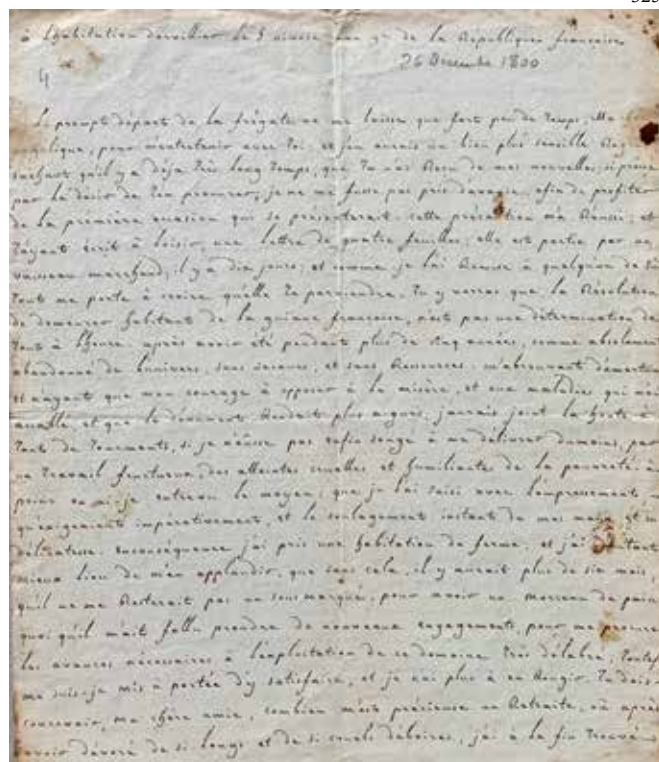 à l'habitation dorvillier le 5 nivose l'an 9e de la République française
26 Décembre 1800
4
Le prompt départ de la frégate ne me laisse que fort peu de temps, ma
angélique, pour m'entretenir avec toi; et j'en aurais un bien plus sensible
sachant qu'il y a déja très long temps, que tu n'as Reçu de mes nouvelles; si pressé
par le désir de t'en procurer, je ne me fusse pas pris d'avance, afin de profiter
de la première occasion qui se présenterait. cette précaution m'a Réussi; et
t'ayant écrit à loisir, une lettre de quatre feuilles; elle est partie par un
vaisseau marchand, il y a dix jours; et comme je l'ai Remise à quelqu'un de
tout me porte à croire qu'elle te parviendra. Tu y verras que la Résolution
de demeurer habitant de la guiane françoise, n'est pas une détermination de
tout à l'heure. après avoir été pendant plus de cinq années, comme absolument
abandonné de l'univers, sans secours, et sans Ressources; m'abreuvant d'amertume
et n'ayant que mon courage à opposer à la misère, et aux maladies qui
et que le dénuement Rendait plus aigues, j'aurais joint la honte à
tant de tourments, si je n'eusse pas enfin songé à me délivrer dumoins, par
un travail fructueux, des atteintes cruelles et humiliantes de la pauvreté. à
peine en ai-je entrevu le moyen, que je l'ai saisi avec l'empressement
qu'exigeaient impérativement, et le soulagement instant de mes maux, et ma
délicatesse. enconséquence j'ai pris une habitation de ferme, et j'ai d'autant
mieux lieu de m'en applaudir, que sans cela, il y aurait plus de six mois,
qu'il ne me Resterait pas un sous marqué, pour avoir un morceau de pain
quoi qu'il m'ait fallu prendre de nouveaux engagements, pour me procurer
les avances nécessaires à l'exploitation de ce domaine très délabré;
me suis-je mis à portée d'y satisfaire, et je n'ai plus à en Rougir. Tu dois
concevoir, ma chère amie, combien m'est précieuse une Retraite, où après
avoir dévoré de si longs et de si cruels déboires, j'ai à la fin trouvé